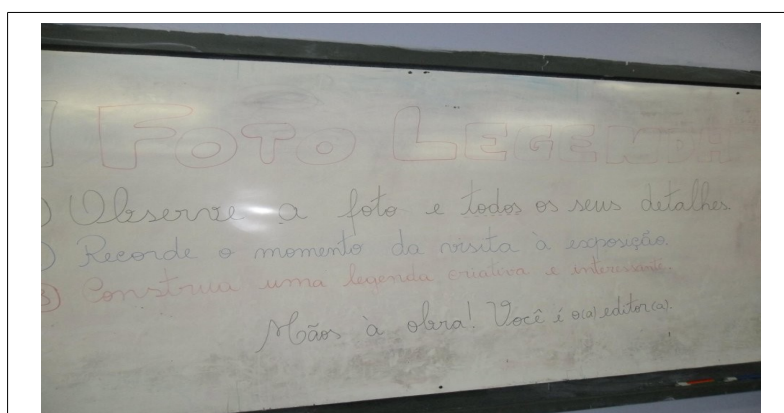 FOTO LEGENDA
) Observe a foto e todos os seus detalhes
) Recorde o momento da visita à exposição.
3) Construir uma legenda criativa e interessante.
Mãos à obra! Você é o(a) editor(a).